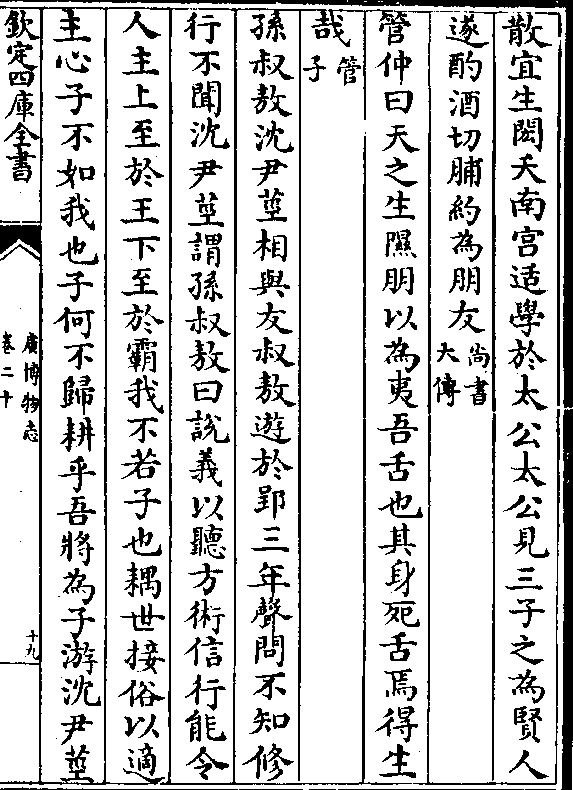 散宜生閎夭南宫适學於太公太公見三子之為賢人
遂酌酒切脯約為朋友尚書大傳
管仲曰天之生隰朋以為夷吾舌也其身死舌焉得生
哉管子
孫叔敖沈尹莖相與友叔敖遊於郢三年聲問不知修
行不聞沈尹莖謂孫叔敖曰說義以聽方術信行能令
人主上至於王下至於霸我不若子也耦世接俗以適
主心子不如我也子何不歸耕乎吾將為子游沈尹莖
欽定四庫全書
廣博物志
卷二十
十九